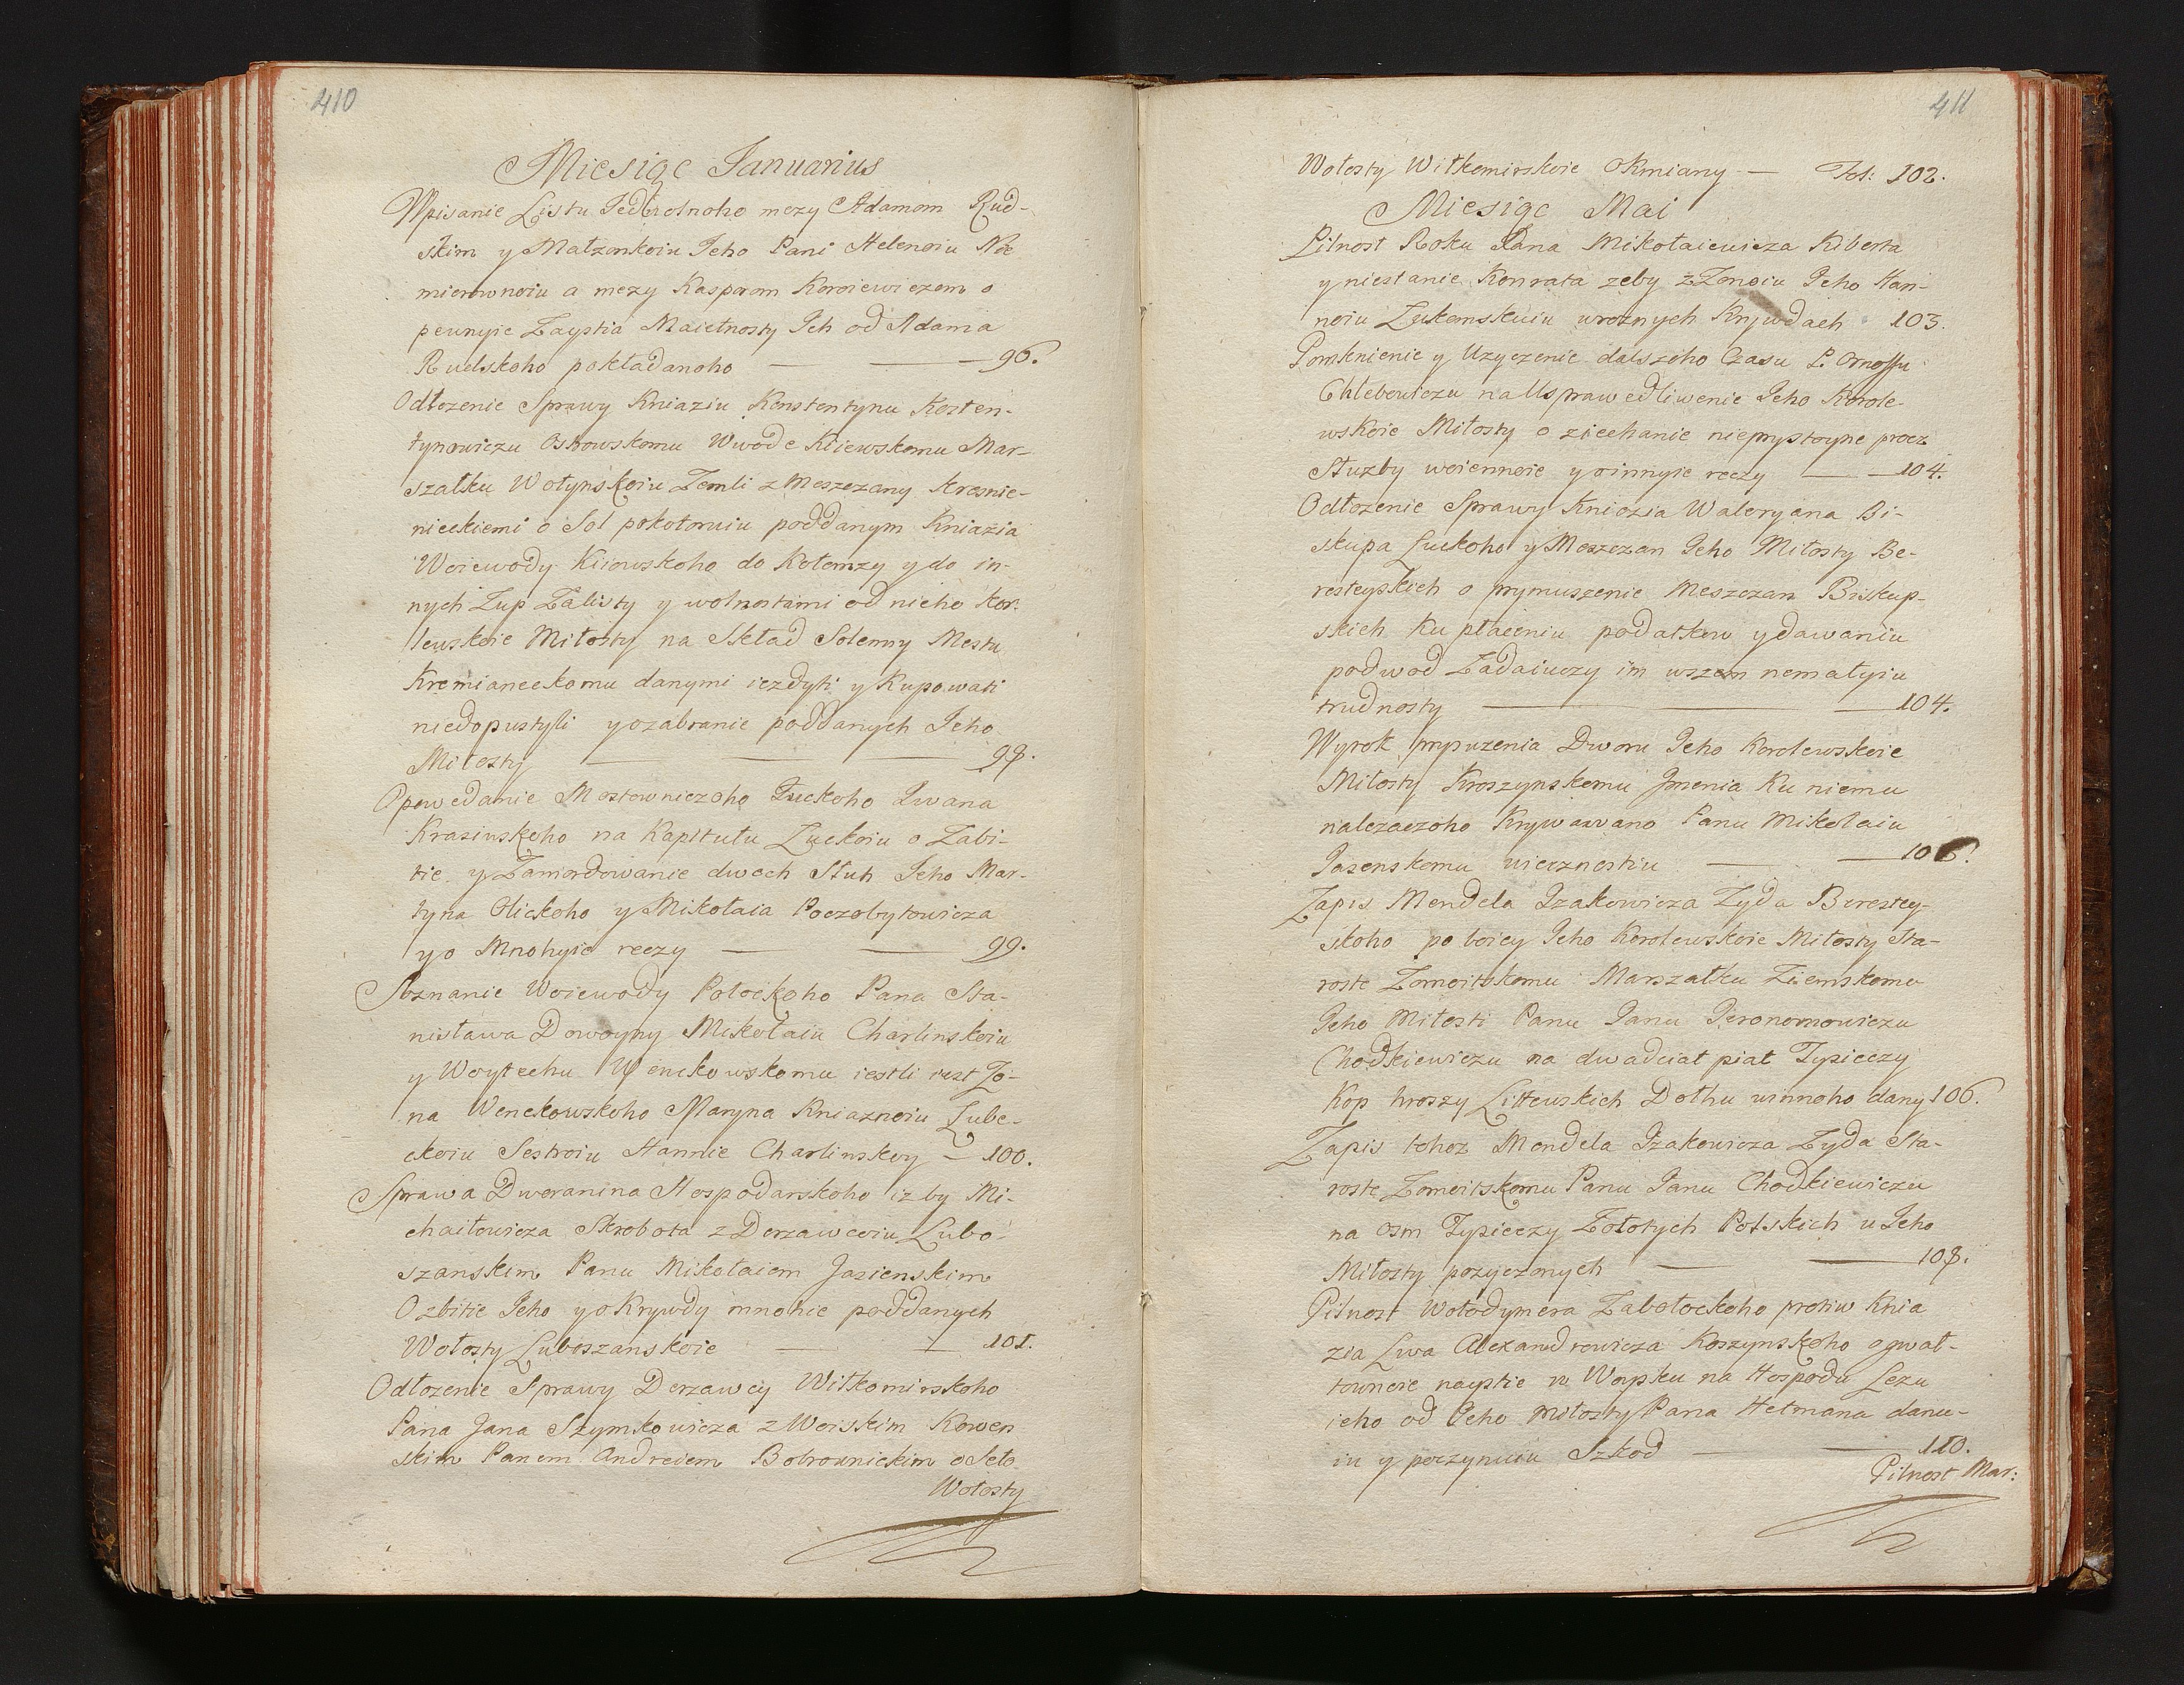 410
Miesiąc Januarius
Wpisanie Listu Jednolnoho mezy Adamom Rud-
skim y Małzonkoiu Jeho Pani Helenoiu Nie
mierownoiu a mezy Kasprom Koroiewiczom o
pewnyie Zaystia Maietnosty Jch od Adama
Rudskoho pokładanoho — — 96.
Odłozenie Sprawy Kniaziu Konstentynu Kosten-
tynowiczu Ostrowskomu Wwode Kiiewskomu Mar-
szałku Wołynskoiu Zemli z Meszczany Kremie-
nieckiemi o Sol pokotoruiu poddanym Kniazia
Woiewody Kiiowskoho do Kołomyy y do in-
nych Zup Zalisty y wolnostami od nieho Kor:
lewskoie Miłosty na Skład Solenny Mestu
Kremianeckomu danymi iezdyti y Kupowati
niedopustyli y o zabranie poddanych Jeho
Miłosty — — — 98.
Opowedanie Mostowniczoho Łuckoho Iwana
Krasinskoho na Kapitułu Łuckoiu o Zabi-
tie y Zamordowanie dwoch Słuh Jeho Mar-
tyna Olickoho y Mikołaia Poczobytowicza
y o Mnohyie reczy — — 99.
Soznanie Woiewody Połockoho Pana Sta-
nisława Dowoyny Mikołaiu Charlinskoiu
y Woytechu Wenckowskomu iestli iest Żo-
na Wenckowskoho Maryna Kniaznoiu Lube-
ckoiu Sestroiu Hannie Charlinskoy — 100.
Sprawa Dworanina Hospodarskoho izby Mi-
chaiłowicza Skrobota z Derzawcoiu Lubo-
szanskim Panu Mikołaiem Jasienskim
O zbitie Jeho y o Krywdy mnohie poddanych
Wołosty Luboszanskoie — — 101.
Odłozenie Sprawy Derzawcy Wiłkomirskoho
Pana Jana Szymkowicza z Woiskim Kowen
skim Panem Andreiem Bobrownickim o Seło
Wołosty
411
Wołosty Wiłkomirskoie Okmiany — Fol: 102.
Miesiąc Mai
Pilnost Roku Pana Mikołaiewicza Kiberta
y niestanie Konrata zeby z Zonoiu Jeho Han-
noiu Zukomskoiu wroznych Krywdach 103.
Pomknienie y Uzyczenie dalszoho Czasu P. Ornosffu
Chlebowiczu na Usprawedliwenie Jeho Korole-
wskoie Miłosty o ziechanie nieprystoyne procz
Słuzby woiennoie y o innyie reczy — — 104.
Odłozenie Sprawy Kniazia Waleryana Bi-
skupa Łuckoho y Moszczan Jeho Miłosty Be-
resteyskich o prymuszenie Meszczan Biskup-
skich Ku płaceniu podatkow y dawaniu
podwod Zadaiuczy im wszem nemałyiu
trudnosty — — — 104.
Wyrok prypuzenia Dworu Jeho Korolewskoie
Miłosty Kroszynskomu Jmenia Ku niemu
nalezaczoho Krywawano Panu Mikolaiu
Jasenskomu wiecznostiu — — 106.
Zapis Mendela Izakowicza Zyda Berestey-
skoho poborcy Jeho Korolewskoie Miłosty Sta-
roste Zomoitskomu Marszałku Ziemskomu
Jeho Miłosti Panu Janu Jeronomowiczu
Chodkiewiczu na dwadciat piat Tysieczy
Kop hroszy Littewskich Dołhu winnoho dany 106.
Zapis tohoz Mendela Izakowicza Zyda Sta-
roste Zomoitskomu Panu Janu Chodkiewiczu
na osm Tysieczy Zołotych Polskich u Jeho
Miłosty pozyczonych — — 108.
Pilnost Wołodymera Zabołockoho protiw Knia
zia Lwa Alexandrowicza Koszynskoho o gwał-
townoie naystie w Woysku na Hospodu Lezu
ieho od Jeho Miłosty Pana Hetmana danu-
iu y poczynuiu Szkod — — 110.
Pilnost Mar: